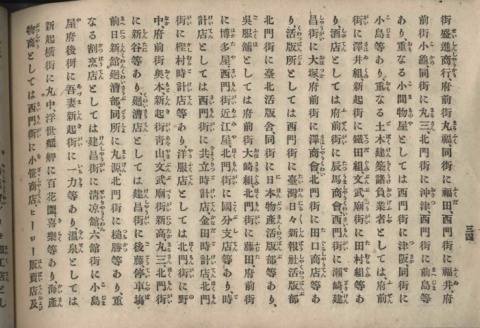 三四
街盛進商行府前街丸福同街に福田西門街に福井府
前街小瀛同街に丸三北門街に沖津西門街に前島等
あり、重なる小間物屋としては西門街に津阪同街に
小島等あり重なる土木建築請負業者としては府前
街に澤井組新起街に鐵田組文武廟街に田村組等あ
り酒店としては府前街に辰馬商會西門街に瀬崎建
昌街に大塚府前街に澤商會北門街に田口商店等あ
り活版所としては西門街に臺灣日々新報社活版部
北門街に臺北活版舎同街に日本物產活版部等あり、
吳服舗としては府前街大﨑組北門街に藤田府前街
に博多屋西門街近江屋北門街に國分支店等あり、時
計店としては西門街に共立時計店金田時計店北門
街に樫村時計店等あり、洋服店としては北門街に野
中府前街奥本新起街靑山文武廟街新高丸三北門街
に新谷等あり廻漕店としては建昌街に後藤停車塲
前日新館廻漕部同所に丸源北門街に槌勝等あり、重
なる割烹店としては建昌街に淸凉館六館街に小島
屋府後街に吾妻新起街に一力等あり溫泉としては
新起橫街に丸中、浮世艋舺に百花園喜樂等あり海產
物商としては西門街に小笹商店ヒーロー販賣店及